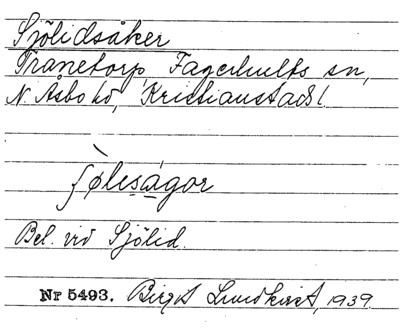 Sjölidsåker
Tranetorp, Fagerhults sn,
N. Åsbo hd, Kristianstads l.
Bel. vid Sjölid.
Nr 5493. Birgit Lundkvist, 1939.